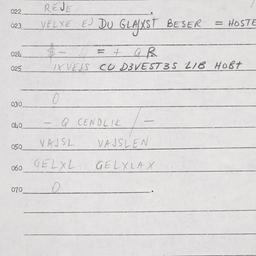 022 REJE
023 VELXE EJ DU GLAJXST BESER = HOSTE
024 $ - = + Q R
025 IXVEJS CU D3VEST3S LIB HOBT
030 0
040 - Q CENDLIL / -
050 VAJSL VAJSLEN
060 GELXL GELXLAX
070 0 .